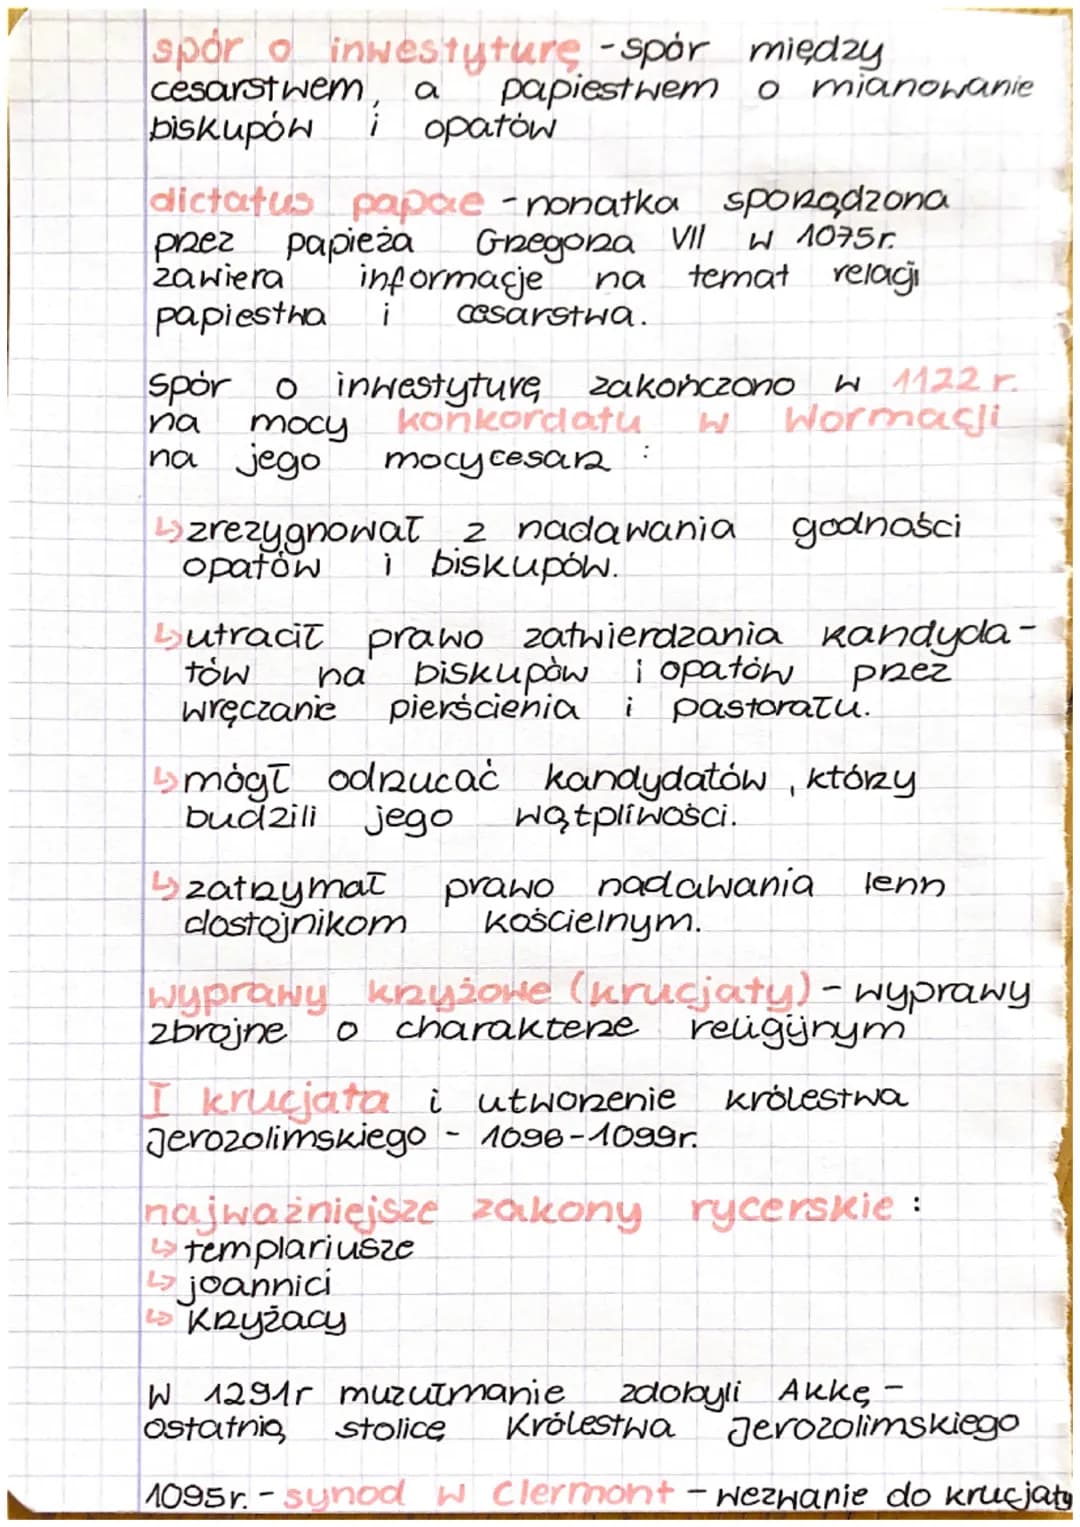 spór o inwestyturę - spór między
cesarstwem, a papiestwem o mianowanie
biskupów i opatów
dictatus papae - nonatka sporządzona
przez papieża Grzegorza VII w 1075r.
zawiera informacje na temat relacji
papiestwa i cesarstwa.
Spór o inwestyturę zakończono w 1122 r.
na mocy konkordatu w Wormacji
na jego mocy cesarz :
↳ zrezygnował z nadawania godności
opatów i biskupów.
↳ utracił prawo zatwierdzania kandyda-
tów na biskupów i opatów przez
wręczanie pierścienia i pastorału.
↳ mógł odrzucać kandydatów, którzy
budzili jego wątpliwości.
↳ zatrzymał prawo nadawania lenn
dostojnikom kościelnym.
wyprawy krzyżowe (krucjaty) - wyprawy
zbrojne o charakterze religijnym
I krucjata i utworzenie królestwa
Jerozolimskiego - 1096-1099r.
najważniejsze zakony rycerskie :
↳ templariusze
↳ joannici
↳ Krzyżacy
W 1291r muzułmanie zdobyli Akkę -
ostatnią stolicę Królestwa Jerozolimskiego
1095r. - synod w Clermont - wezwanie do krucjaty